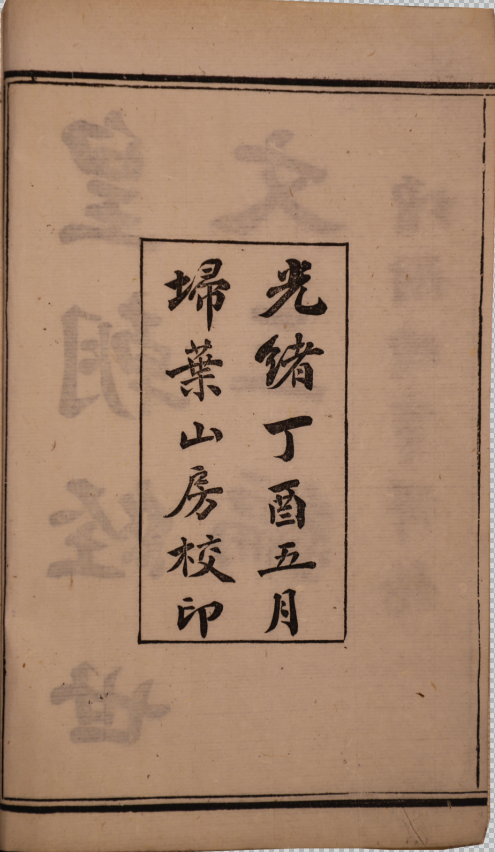 光緒丁酉五月
埽葉山房校印